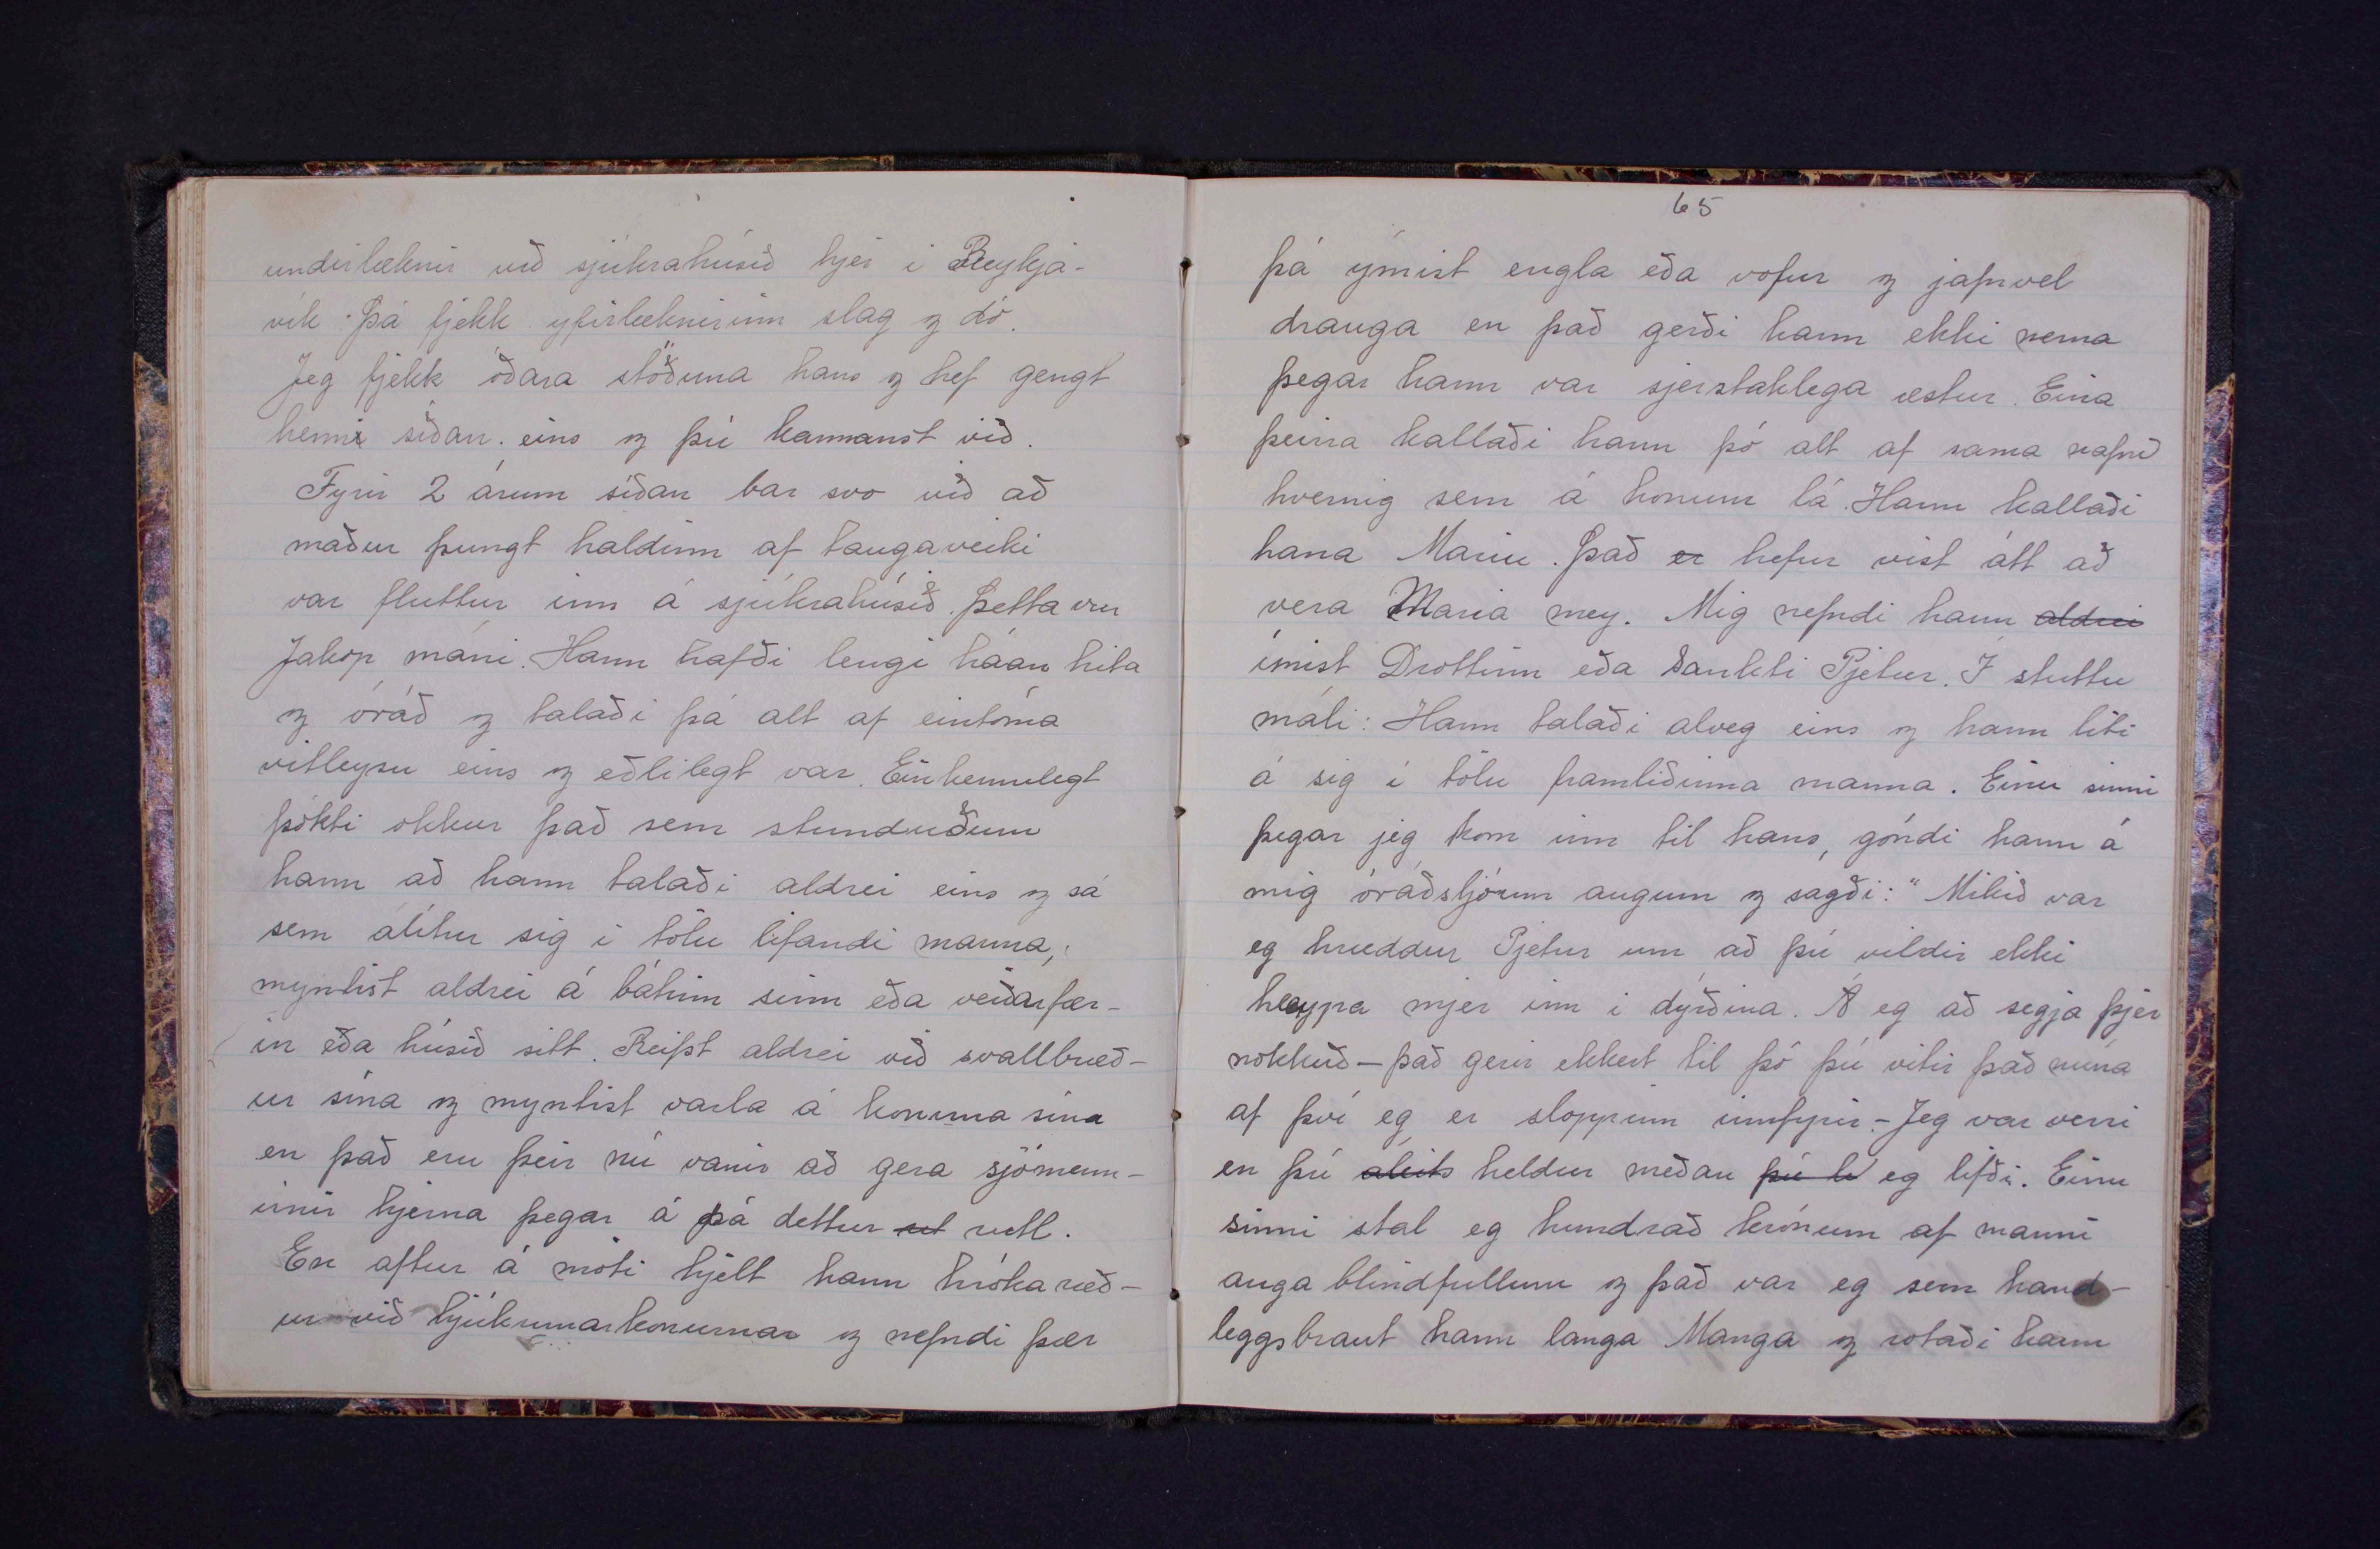 undirlæknir við sjúkrahúsið hjer i Reykja-
vík. Þá fjekk yfirlæknirinn slag og dó.
Jeg fjekk óðara stöðuna hans og hef gengt
henni síðan. eins og þú kannanst við.
Fyrir 2 árum síðan bar svo við að
maður þungt haldinn af taugaveiki
var fluttur inn á sjúkrahúsið. Þetta var
Jakop máni. Hann hafði lengi háan hita
og óráð og talaði þá alt af eintóma
vitleysu eins og eðlilegt var. Einkennilegt
þókti okkur það sem stunduðum
hann að hann talaði aldrei eins og sá
sem álítur sig i tölu lifandi manna,
myntist aldrei á bátinn sinn eða veiðarfær-
in eða húsið sitt. Reifst aldrei við svallbræð-
ur sína og myntist varla á konuna sína
en það eru þeir nú vanir að gera sjómenn-
irnir hjerna þegar á þá dettur ut rutl.
En aftur á móti hjelt hann hrókaræð-
ur við hjúkrunarkonurnar og nefndi þær
65
þá ýmist engla eða vofur og jafnvel
drauga en það gerði hann ekki nema
þegar hann var sjerstaklega æstur. Eina
þeirra kallaði hann þó alt af sama nafni
hvernig sem á honum lá. Hann kallaði
hana Maríu. Það er hefur víst átt að
vera Maria mey. Mig nefndi hann aldrei
ímist Drottinn eða Sankti Pjetur. I stuttu
máli: Hann talaði alveg eins og hann liti
á sig í tölu framliðinna manna. Einu sinni
þegar jeg kom inn til hans, góndi hann á
mig óráðsljórum augum og sagði: "Mikið var
eg hræddur Pjetur um að þú vildir ekki
hleypa mjer inn i dýrðina. Á eg að segja þjer
nokkuð – það gerir ekkert til þó þú vitir það núna
af því eg er sloppinn innfyrir. – Jeg var verri
en þú heldur meðan þú li eg lifði. Einu
sinni stal eg hundrað krónum af manni
auga blindfullum og það var eg sem hand-
leggsbraut hann langa Manga og rotaði hann